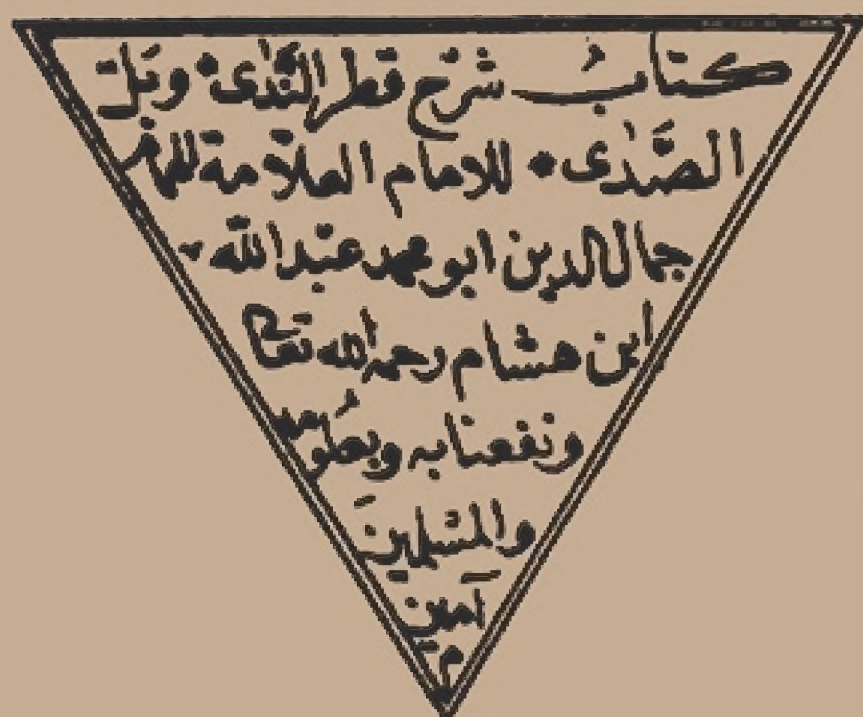 كتابُ شرْح قطر النَّدَى • وبَلّ
الصَّدَى • للامام العلّامة
جمال الدين ابو محمد عبْد الله
ابن هشام رحمه الله تعالى
ونفعنا به وبعلومه
والمسْلمينَ
آمين
م